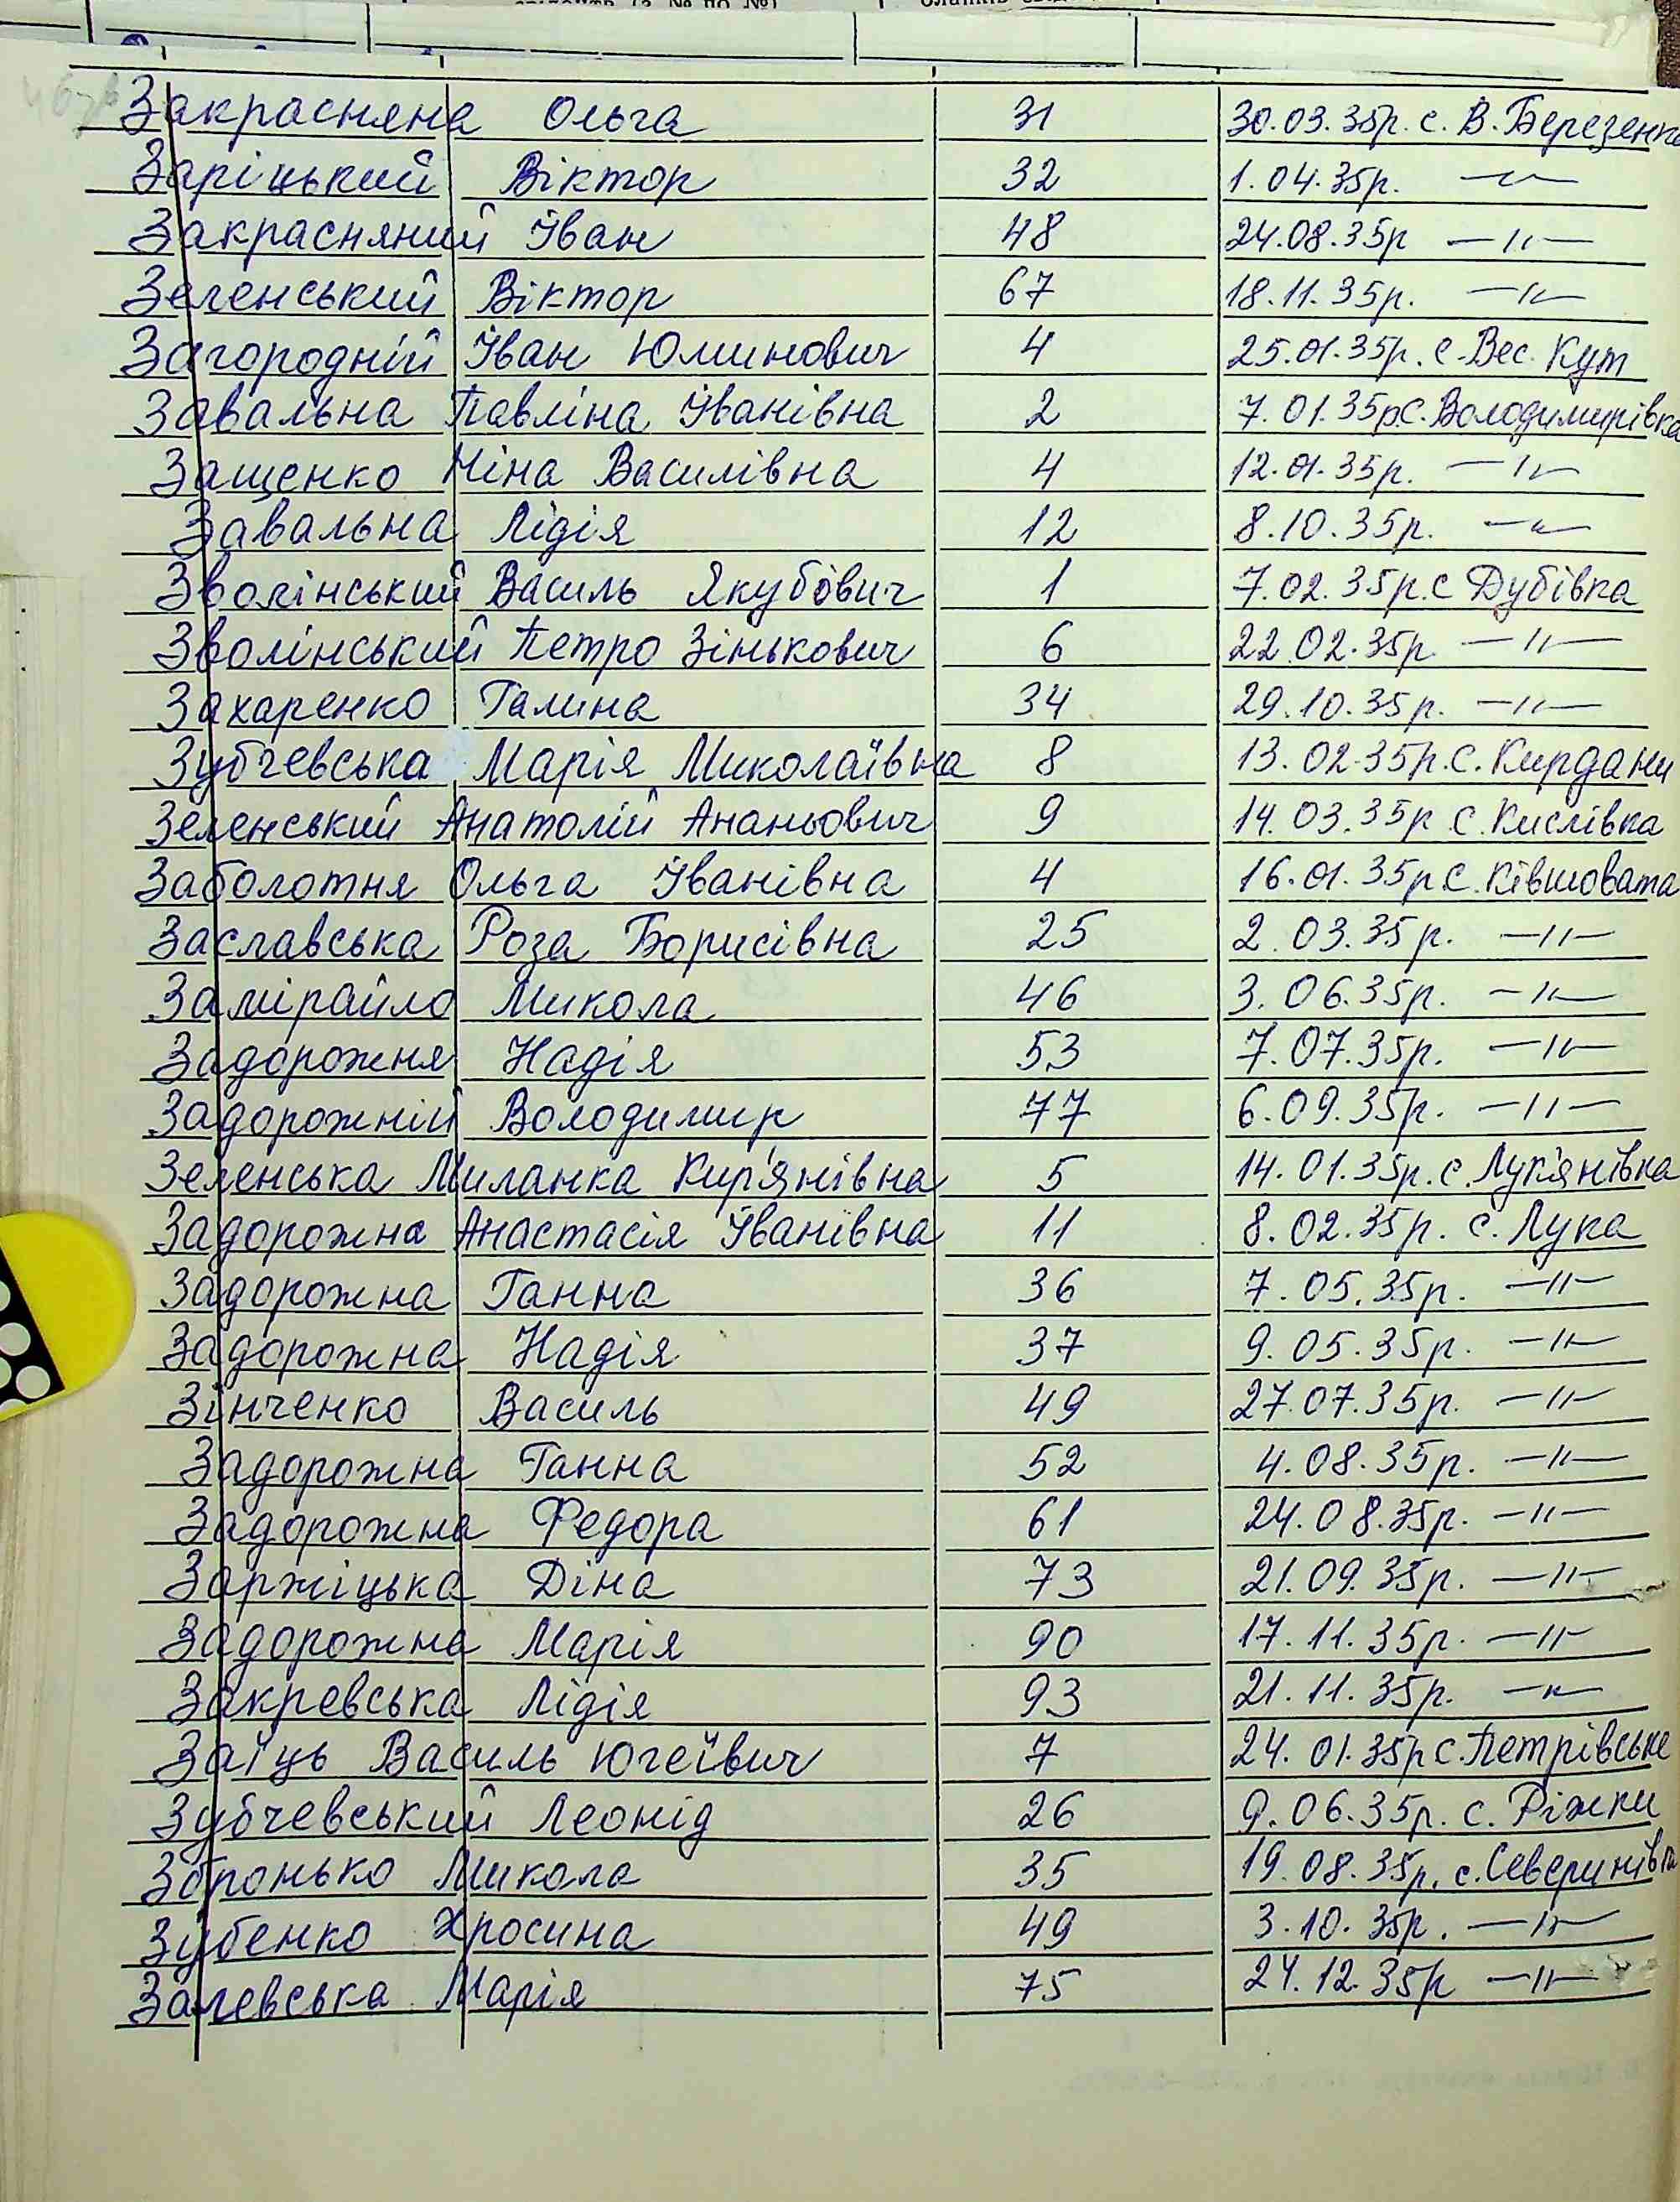 Закрасняна Ольга 31 30.03.35р. с. В. Березянка
Заріцький Віктор 32 1.04.35р. —"—
Закрасняний Іван 48 24.08.35р —"—
Зеленський Віктор 67 18.11.35р. —"—
Загородній Іван Юминович 4 25.01.35р. с. Вес. Кут
Завальна Павліна Іванівна 2 7.01.35р с. Володимирівка
Защенко Ніна Василівна 4 12.01.35р. —"—
Завальна Лідія 12 8.10.35р. —"—
Зволінський Василь Якубович 1 7.02.35р. с Дубівка
Зволінський Петро Зінькович 6 22.02.35р. —"—
Захаренко Галина 34 29.10.35р. —"—
Зубчевська Марія Миколаївна 8 13.02.35р. с. Кирдани
Зеленський Анатолій Ананьович 9 14.03.35р с. Кислівка
Заболотня Ольга Іванівна 4 16.01.35р с. Ківшовата
Заславська Роза Борисівна 25 2.03.35р. —"—
Замірайло Микола 46 3.06.35р. —"—
Задорожня Надія 53 7.07.35р. —"—
Задорожній Володимир 77 6.09.35р. —"—
Зеленська Миланка Кир'янівна 5 14.01.35р. с. Лук'янівка
Задорожна Анастасія Іванівна 11 8.02.35р. с. Лука
Задорожна Ганна 36 7.05.35р. —"—
Задорожна Надія 37 9.05.35р. —"—
Зінченко Василь 49 27.07.35р. —"—
Задорожна Ганна 52 4.08.35р. —"—
Задорожна Федора 61 24.08.35р. —"—
Заржіцька Діна 73 21.09.35р. —"—
Задорожна Марія 90 17.11.35р. —"—
Закревська Лідія 93 21.11.35р. —"—
Заїць Василь Югеївич 7 24.01.35р с. Петрівське
Зубчевський Леонід 26 9.06.35р. с. Ріжки
Збронько Микола 35 19.08.35р. с. Северинівка
Зубенко Хросина 49 3.10.35р. —"—
Залевська Марія 75 24.12.35р —"—